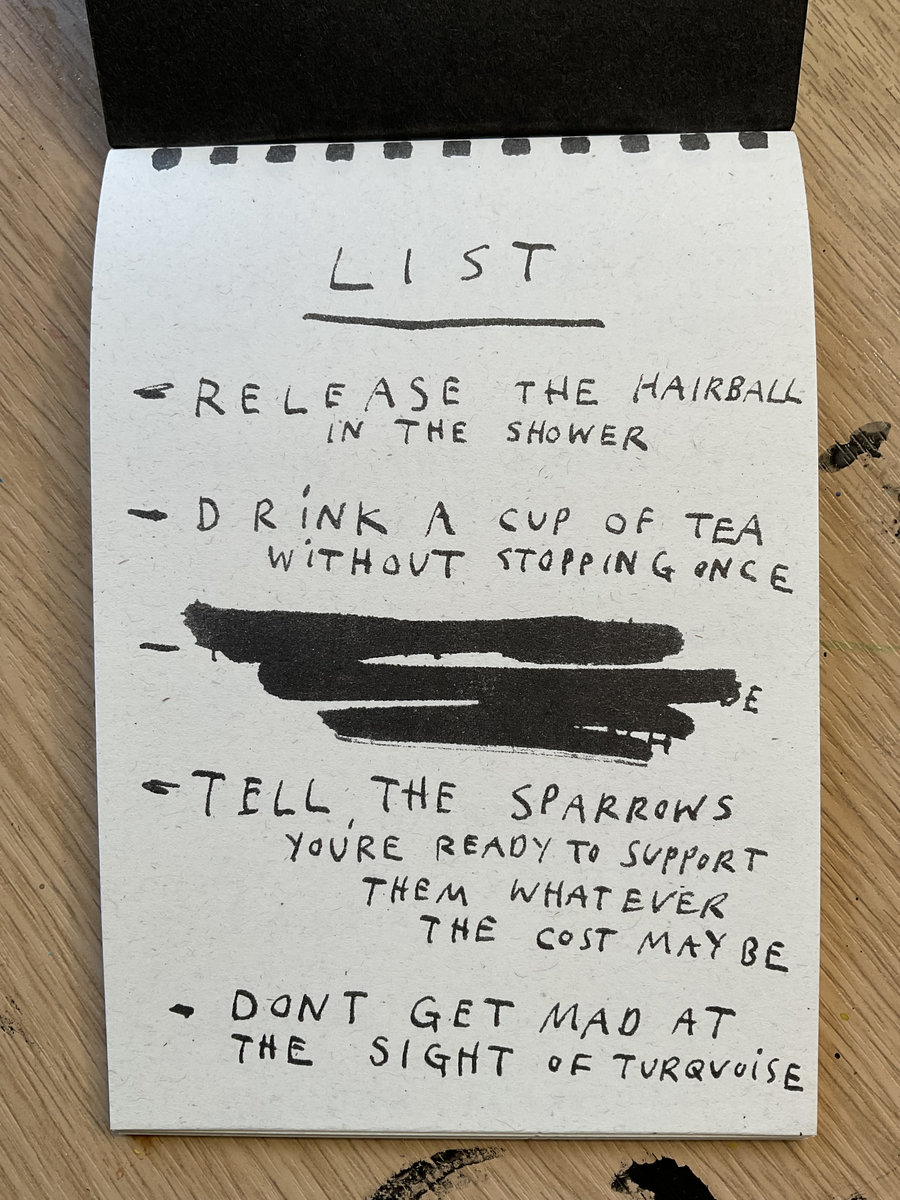 LIST
- RELEASE THE HAIRBALL
IN THE SHOWER
- DRINK A CUP OF TEA
WITHOUT STOPPING ONCE
-
- TELL THE SPARROWS
YOU'RE READY TO SUPPORT
THEM WHATEVER
THE COST MAY BE
- DONT GET MAD AT
THE SIGHT OF TURQUOISE